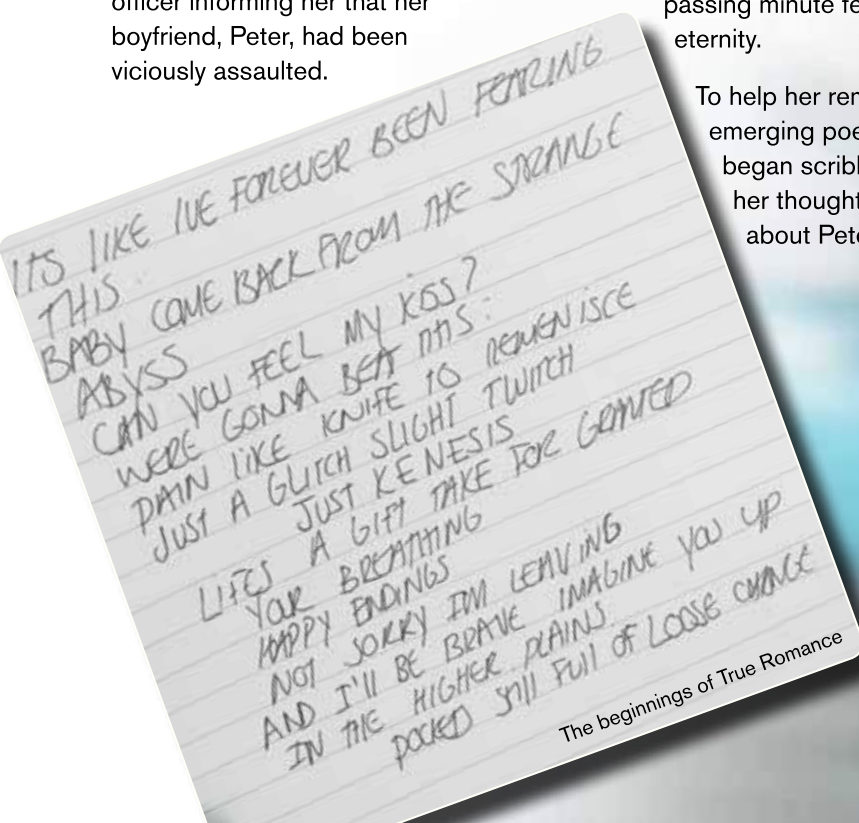 officer informing her that her
boyfriend, Peter, had been
viciously assaulted.
passing minute fe
eternity.
To help her rem
emerging poe
began scribb
her thought
about Pete
ITS LIKE IVE FOREVER BEEN FEARING
THIS.
BABY COME BACK FROM THE STRANGE
ABYSS
CAN YOU FEEL MY KISS?
WERE GONNA BEAT THIS.
PAIN LIKE KNIFE TO REMENISCE
JUST A GLITCH SLIGHT TWITCH
JUST KENESIS
LIFES A GIFT TAKE FOR GRANTED
YOUR BREATHING
HAPPY ENDINGS
NOT SORRY IM LEAVING
AND I'LL BE BRAVE IMAGINE YOU UP
IN THE HIGHER PLAINS
POCKED STILL FULL OF LOOSE CHANGE
The beginnings of True Romance